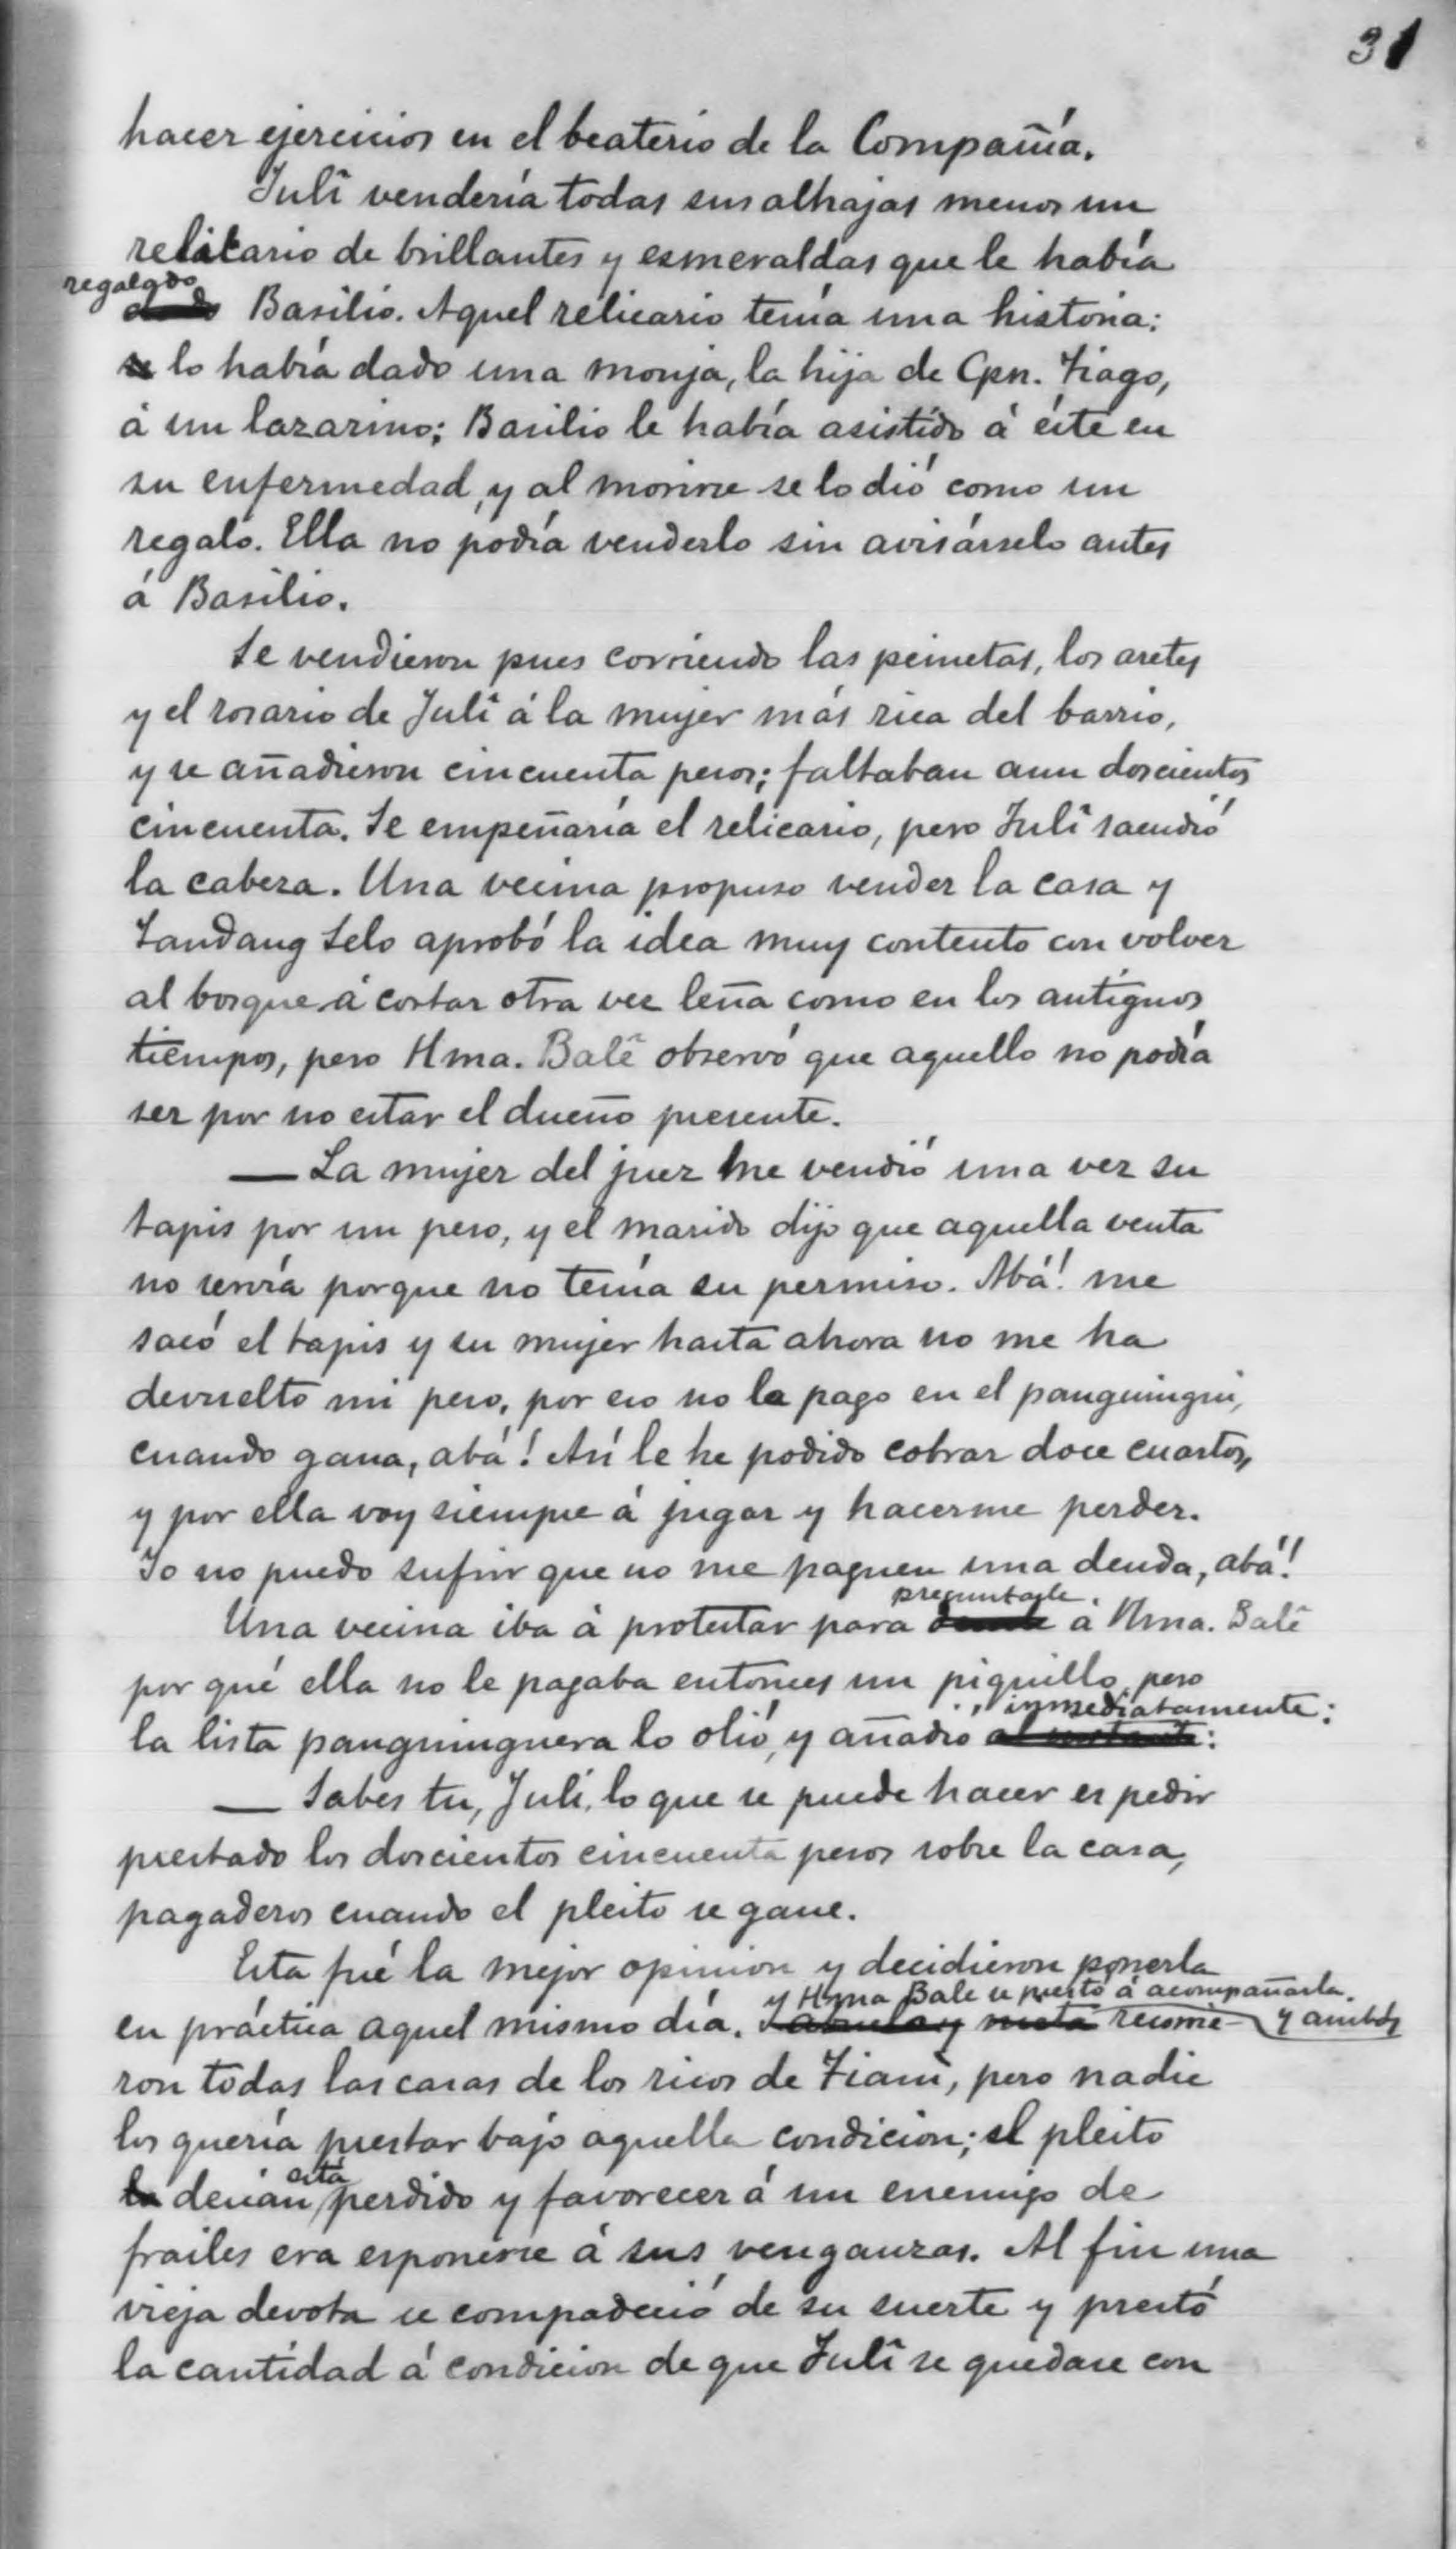 31
hacer ejercicios en el beaterio de la Compañía.
Julî vendería todas sus alhajas menos un
relicario de brillantes y esmeraldas que le había
regalado
Basilio. Aquel relicario tenía una historia:
se lo había dado una monja, la hija de Cpn. Tiago,
á un lazarino; Basilio le había asistido á éste en
su enfermedad, y al morirse se lo dió como un
regalo. Ella no podía venderlo sin avisárselo antes
á Basilio.
Se vendieron pues corriendo las peinetas, los aretes
y el rosario de Julî á la mujer más rica del barrio,
y se añadieron cincuenta pesos; faltaban aun doscientos
cincuenta. Se empeñaría el relicario, pero Julî sacudió
la cabeza. Una vecina propuso vender la casa y
Tandang Selo aprobó la idea muy contento con volver
al bosque á cortar otra vez leña como en los antiguos
tiempos, pero Hma. Balê observó que aquello no podía
ser por no estar el dueño presente.
— La mujer del juez me vendió una vez su
tapis por un peso, y el marido dijo que aquella venta
no servía porque no tenía su permiso. Abá! me
sacó el tapis y su mujer hasta ahora no me ha
devuelto mi peso, por eso no la pago en el panguingui,
cuando gana, abá! Así le he podido cobrar doce cuartos,
y por ella voy siempre á jugar y hacerme perder.
Yo no puedo sufrir que no me paguen una deuda, abá!
preguntarle
Una vecina iba á protestar para á Hma. Balê
por qué ella no le pagaba entonces un piquillo, pero
inmediatamente:
la lista panguinguera lo olió, y añadió al instante:
— Sabes tu, Julî, lo que se puede hacer es pedir
prestado los doscientos cincuenta pesos sobre la casa,
pagaderos cuando el pleito se gane.
Esta fué la mejor opinion y decidieron ponerla
y Hma Balê se prestó á acompañarla.
en práctica aquel mismo día. y nieta recorrie- y ambos
ron todas las casas de los ricos de Tianì, pero nadie
los quería prestar bajo aquella condicion; el pleito
está
decían perdido y favorecer á un enemigo de
frailes era esponerse á sus venganzas. Al fin una
vieja devota se compadeció de su suerte y prestó
la cantidad á condicion de que Julî se quedase con